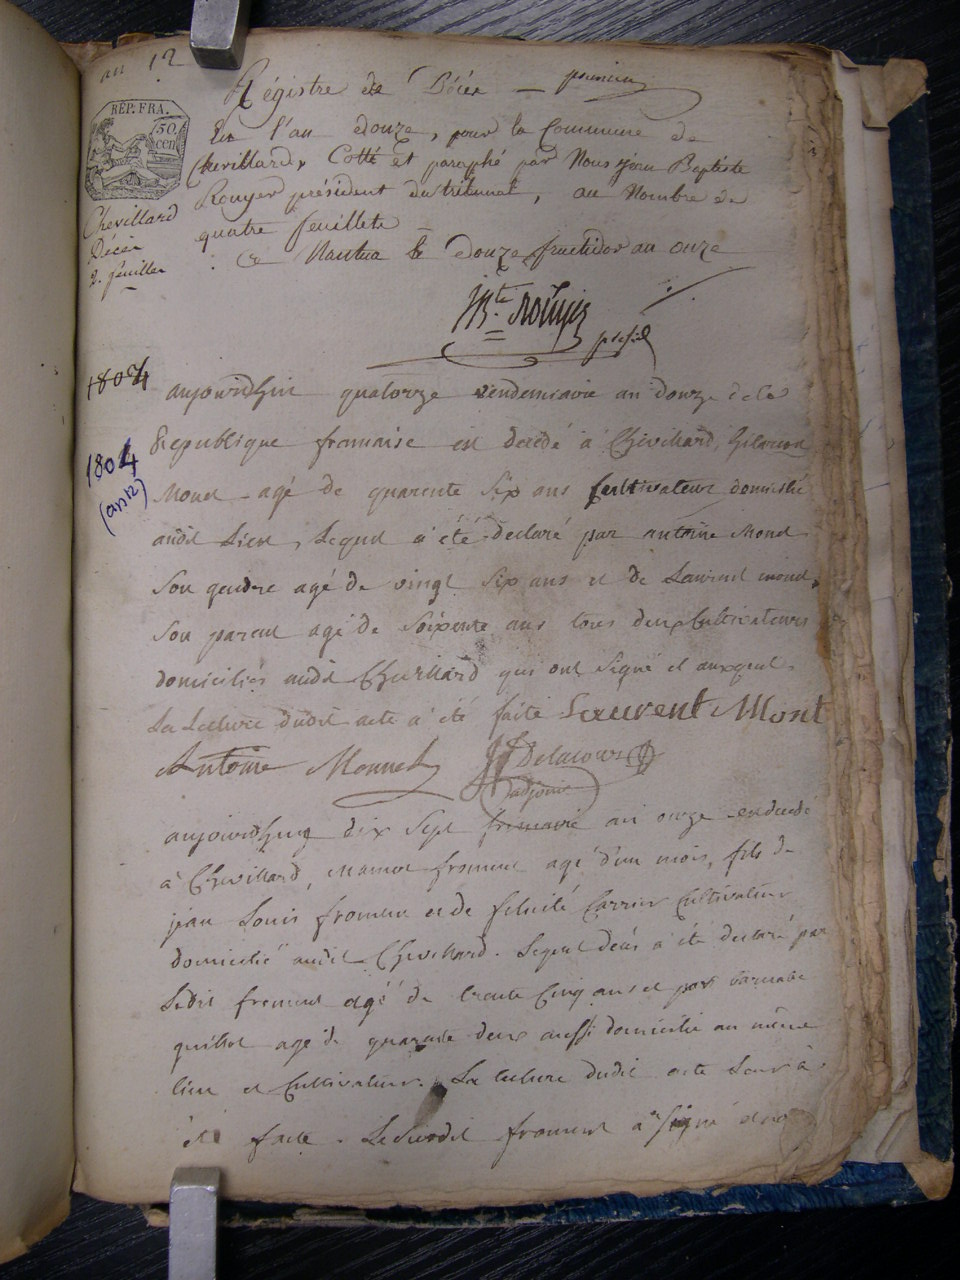 an 12
RÉP. FRA.
50
cen
Régistre de Décès — premier
En l'an douze, pour la Commune de
Chevillard, Cotté et paraphé par Nous jean Baptiste
Rouyer président du tribunal, au Nombre de
quatre feuillets
Ce Nantua le douze fructidor an onze
Chevillard
Décès
2. feuilles
JB.te Rouyer
présid
1804
aujourdhui quatorze vendemiaire an douze de la
Republique francaise est decedé à Chevillard,
Monet agé de quarente six ans Cultivateur domicilié
audit Lieu, Lequel a été declaré par antoine Monet
1804
(an 12)
Son gendre agé de vingt six ans et de Laurent monet
Son parent agé de Soixente ans tous deux Cultivateurs
domiciliés audit Chevillard qui ont Signé et auxquels
La Lecture dudit acte a été faite Laurent Mont
Antoine Monnet Delacour
adjoint
aujourdhuy dix Sept frimaire an onze est decedé
à Chevillard, froment agé d'un mois, fils de
jean Louis froment et de felicité Carrier Cultivateur
domicilié audit Chevillard. Lequel décès a été declaré par
Ledit froment agé de trente Cinq ans et par barnabé
quillot agé de quarante deux aussi domicilié au même
lieu et Cultivateur. La lecture dudit acte Leur a
été faite. Le Susdit froment a Signé et non